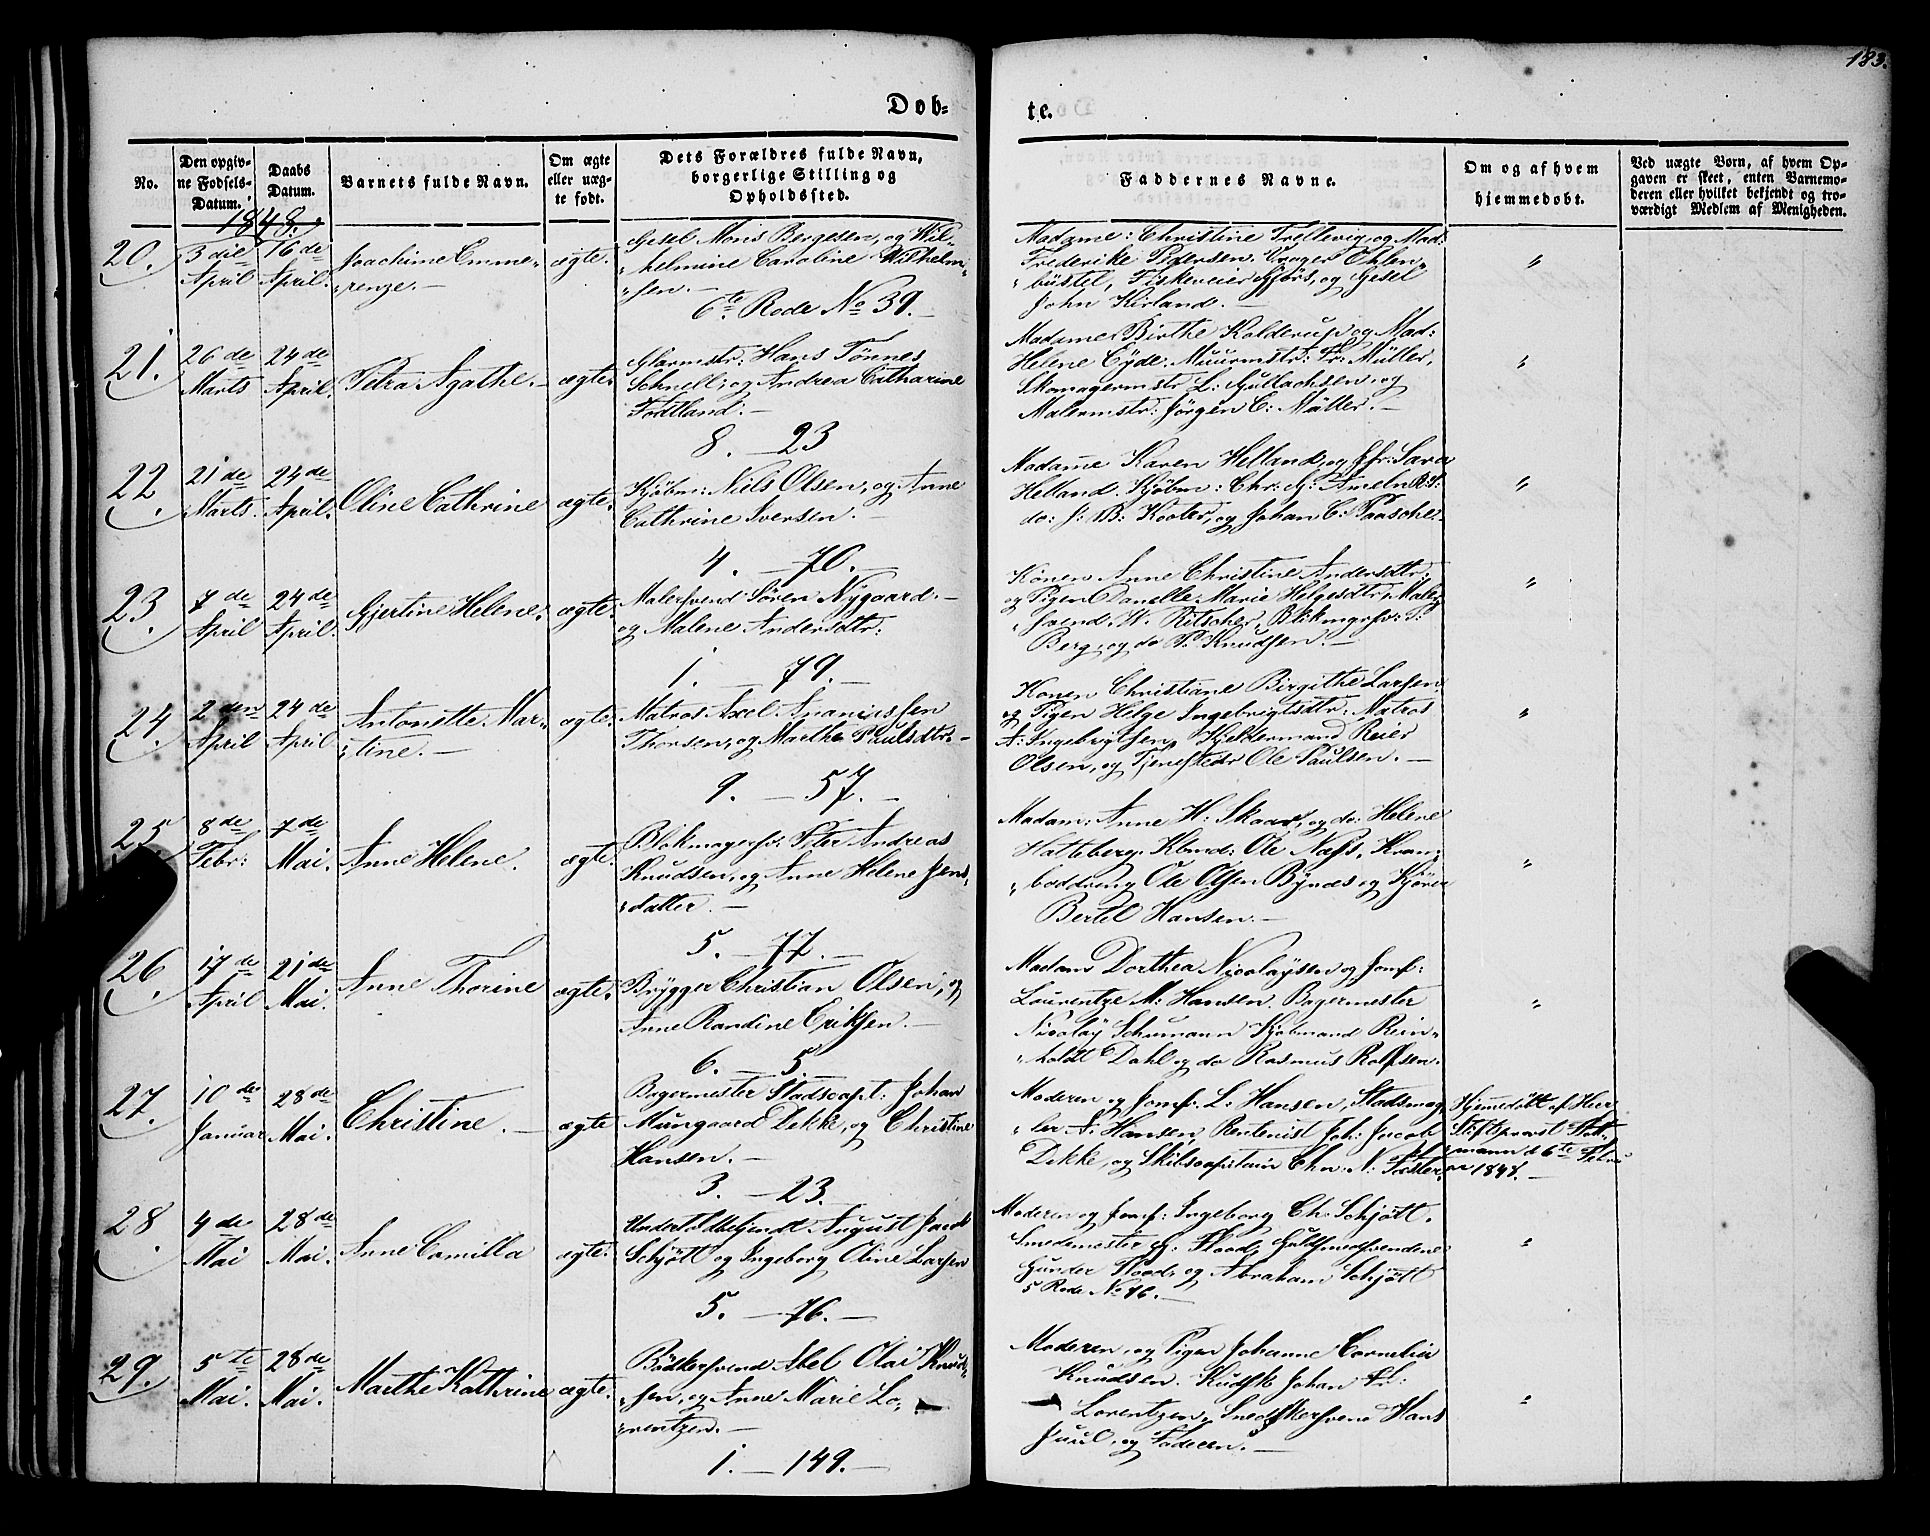 183.
Døb-
te.
No.
Den opgiv-
ne Fødsels-
Datum.
Daabs
Datum.
Barnets fulde Navn.
Om ægte
eller uæg-
te født.
Dets Forældres fulde Navn,
borgerlige Stilling og
Opholdssted.
Faddernes Navne.
Om og af hvem
hjemmedøbt.
Ved uægte Børn, af hvem Op-
gaven er skeet, enten Barnemo-
deren eller hvilket bekjendt og tro-
værdigt Medlem af Menigheden.
1848.
20.
3die
April
16de
April.
Joachime Emme-
renze.
ægte.
Gesel Mons Bergesen, og Wil-
helmine Caroline Wilhelm-
sen.
6te Rode No 39.
Madame: Christine Trellevig, og Mad:
Frederike Pedersen. Vrager Ohlen-
büstel, Fiskeveier Gjørs, og Gesel
John Kirland.
"
21.
26de
Marts
24de
April.
Petra Agathe.
ægte.
Glarmstr: Hans Tønnes
Schnell, og Andrea Catharine
Fodtland.
8. 23
Madame Birthe Kalderup og Mad:
Helene Eyde. Muurmstr: Fr: Müller,
Skomagermstr L: Gullachsen, og
Malermstr: Jørgen C: Müller.
"
22.
21de
Marts.
24de
April.
Oline Cathrine
ægte.
Kjøbm: Niels Olsen, og Anne
Cathrine Iversen.
4. 70.
Madame Karen Helland, og Jfr: Sara
Helland. Kjøbm: Chr: G: Ameln
do: J: B: Kooter, og Johan C: Paasche.
"
23.
7de
April
24de
April.
Gjertine Helene.
ægte.
Malersvend Søren Nygaard.
og Malene Andersdtr:
1. 79.
Konen Anne Christine Andersdtr:
og Pigen Danelle Marie Helgesdtr: Maler
svend W. Ritscher, Blikmgrsv: T:
Berg, og do P. Knudsen.
"
24.
2den
April
24de
April
Antonette Mar-
tine.
ægte.
Matros Axel Ananiussen
Thorsen, og Marthe Paulsdtr.
9. 57.
Konen Christiane Birgithe Larsen
og Pigen Helge Ingebrigtsdtr. Matros
A: Ingebrigtsen, Kjeldermand Reier
Olsen, og Tjenestedr Ole Paulsen.
"
25
8de
Febr:
7de
Mai.
Anne Helene.
ægte.
Blokmagersv: Peter Andreas
Knudsen, og Anne Helene Jens-
datter.
5. 77.
Madam: Anne H: Skaar, og do: Helene
Hatteberg. Kbmd: Ole Næss, Kram-
boddreng Ole Olsen Bynæs og Kjører
Bertel Hansen.
"
26.
17de
April
21de
Mai.
Anne Thorine
ægte.
Brygger Christian Olsen, og
Anne Randine Eriksen.
6. 5.
Madam Dorthea Nicolaysen og Jomf:
Laurentze M: Hansen. Bagermester
Nicolay Schumann Kjøbmand Rein-
holdt Dahl og do Rasmus Rolfsen.
"
27.
10de
Januar
28de
Mai.
Christine.
ægte
Bagermester Stadscapt: Johan
Mungaard Dekke, og Christine
Hansen.
3. 23.
Moderen og Jomf: L: Hansen, Stadsmæg
ler A: Hansen, Rentenist Joh: Jacob
Dekke, og Skibscapitain Chr: N:
Hjemmedøbt af Herr
Stiftsprovst
mann d 6te Febru
ar 1848.
28
4de
Mai
28de
Mai.
Anne Camilla
ægte.
August Jacob
Schjøtt og Ingeborg Oline Larsen
5. 76.
Moderen og Jomf: Ingeborg Ch: Schjøtt.
Smedemester G: Flood, Guldsmedsvendene
Gunder Flood, og Abraham Schjøtt
5 Rode No 76.
"
29.
5te
Mai.
28de
Mai.
Marthe Kathrine
ægte.
Bødkersvend Abel Olai Knud-
sen, og Anne Marie Lo-
rentzen.
1. 149.
Moderen, og Pigen Johanne Cornelia
Knudsen. Kudsk Johan Fr:
Lorentzen, Snedkersvend Hans
Juul, og Faderen.
"